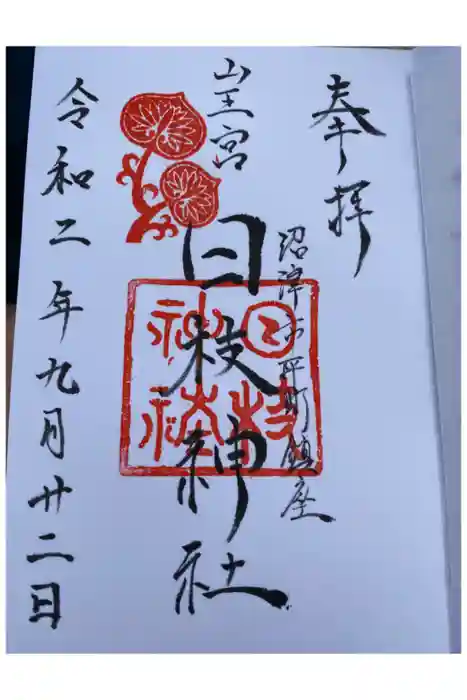 奉拝
沼津市平町鎮座
山王宮
日枝神社
日枝
神社
令和二年九月廿二日